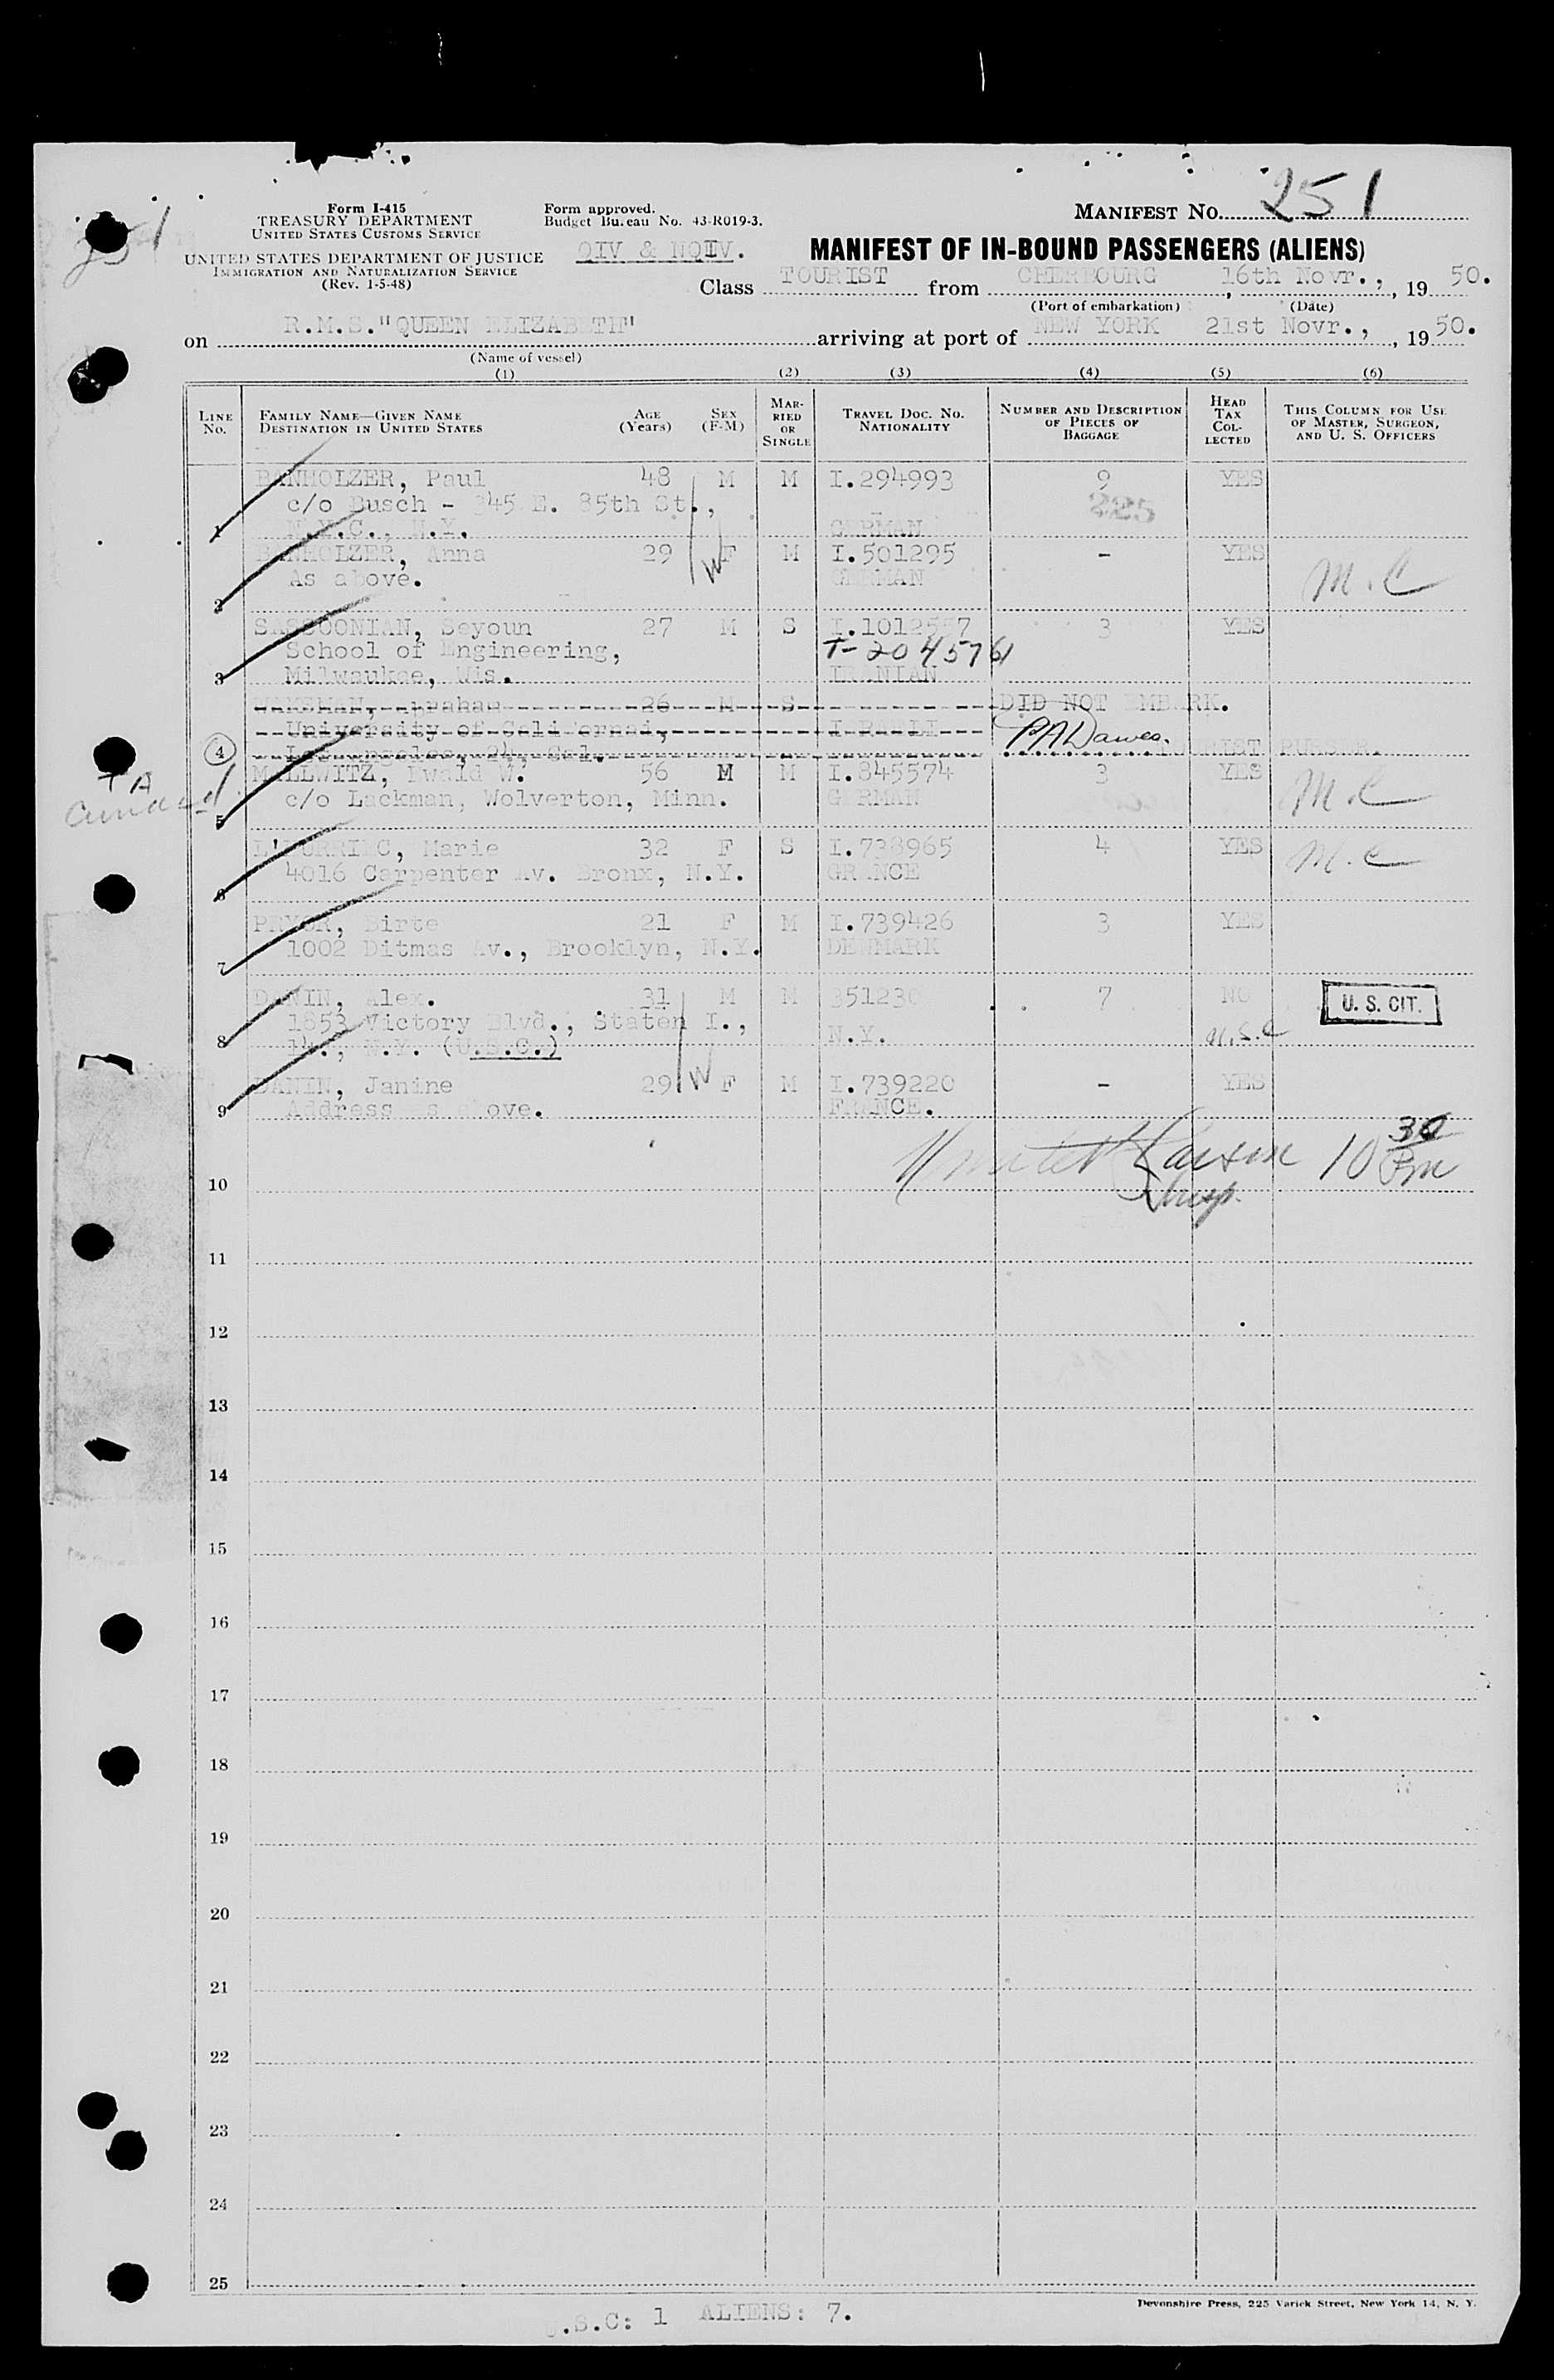 251
Form I-415
TREASURY DEPARTMENT
UNITED STATES CUSTOMS SERVICE
UNITED STATES DEPARTMENT OF JUSTICE
IMMIGRATION AND NATURALIZATION SERVICE
(Rev. 1-5-48)
Form approved.
Budget Bureau No. 43-R019-3.
QIV &
MANIFEST No. 251
MANIFEST OF IN-BOUND PASSENGERS (ALIENS)
Class TOURIST from CHERBOURG, 16th Novr., 1950.
(Port of embarkation) (Date)
on R.M.S."QUEEN ELIZABETH" arriving at port of NEW YORK 21st Novr., 1950.
(Name of vessel)
(1) (2) (3) (4) (5) (6)
LINE No. FAMILY NAME—GIVEN NAME DESTINATION IN UNITED STATES AGE (Years) SEX (F-M) MARRIED OR SINGLE TRAVEL DOC. NO. NATIONALITY NUMBER AND DESCRIPTION OF PIECES OF BAGGAGE HEAD TAX COLLECTED THIS COLUMN FOR USE OF MASTER, SURGEON, AND U. S. OFFICERS
BANHOLZER, Paul 48 M M I.294993 9 YES
c/o Busch - 345 E. 85th St., 225
1 N.Y.C., N.Y. GERMAN
BANHOLZER, Anna 29 W F M I.501295 - YES
2 As above. GERMAN M.C
SASSOONIAN, Seyoun 27 M S 3 YES
School of Engineering, T-2045761
3 Milwaukee, Wis. IRANIAN
26 M S DID NOT EMBARK.
University of Californai, P.A.Dawes.
4 Los Angeles, 24, Cal. TOURIST PURSER.
MALLWITZ, Ewald W. 56 M M I.845574 3 YES
5 c/o Lackman, Wolverton, Minn. GERMAN M.C
Marie 32 F S I.738965 4 YES
6 4016 Carpenter Av. Bronx, N.Y. GRANCE M.C
PRYOR, Birte 21 F M I.739426 3 YES
7 1002 Ditmas Av., Brooklyn, N.Y. DENMARK
DANIN, Alex. 31 M M 7 NO U. S. CIT.
1853 Victory Blvd., Staten I., N.Y. U.S.C
8 14., N.Y. (U.S.C.)
DANIN, Janine 29 W F M I.739220 - YES
9 Address as above. FRANCE.
10 30 Pm
Insp.
10
11
12
13
14
15
16
17
18
19
20
21
22
23
24
25
Devonshire Press, 225 Varick Street, New York 14, N. Y.
U.S.C: 1 ALIENS: 7.